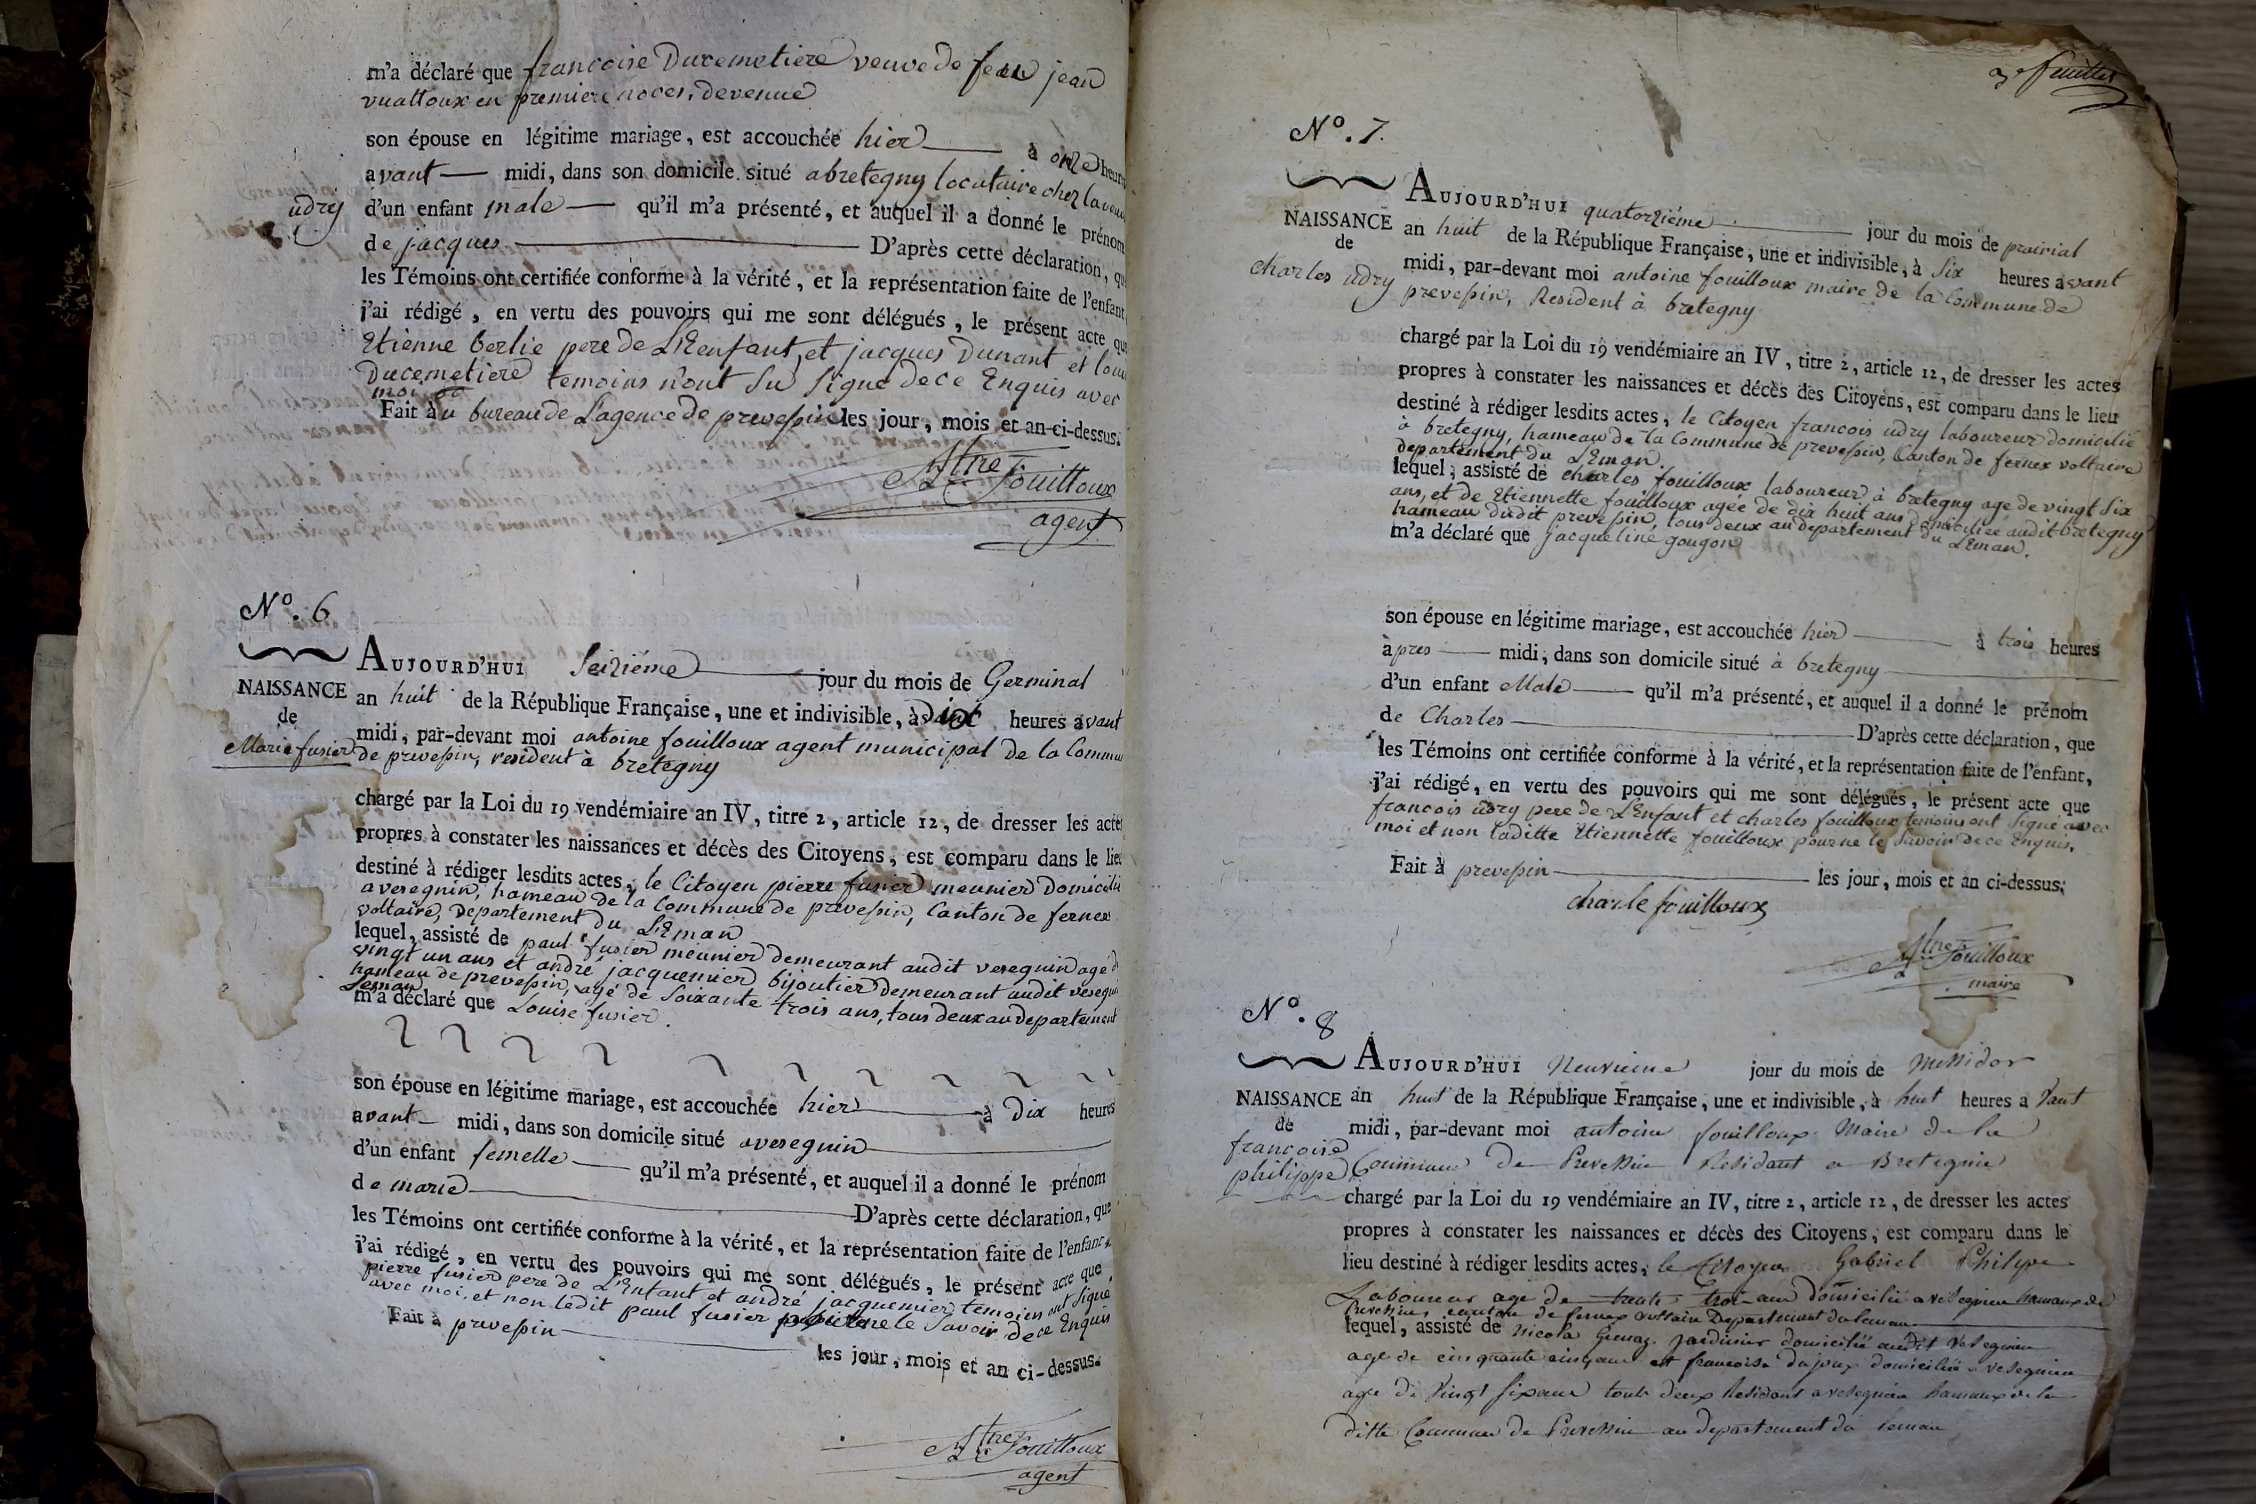 m'a déclaré que francoise Ducemetiere veuve de feu jean
vualtoux en premiere noces, devenue
son épouse en légitime mariage, est accouchée hier à onze heures
avant midi, dans son domicile situé a bretegny locataire chez la veuve
udry d'un enfant male qu'il m'a présenté, et auquel il a donné le prénom
de jacques D'après cette déclaration, que
les Témoins ont certifiée conforme à la vérité, et la représentation faite de l'enfant
j'ai rédigé, en vertu des pouvoirs qui me sont délégués, le présent acte que
Etienne berlie pere de L'Enfant, et jacques Dunant et
Ducemetiere temoins n'ont Su Signé de ce Enquis avec
moi
Fait àu bureau de L'agence de prevessin les jour, mois et an ci-dessus.
Fouilloux
agent
N.º 6
AUJOURD'HUI Seiziéme jour du mois de Germinal
NAISSANCE an huit de la République Française, une et indivisible, à Dix heures avant
de midi, par-devant moi antoine fouilloux agent municipal de la Commune
Marie fusier de prevessin, resident à bretegny
chargé par la Loi du 19 vendémiaire an IV, titre 2, article 12, de dresser les actes
propres à constater les naissances et décès des Citoyens, est comparu dans le lieu
destiné à rédiger lesdits actes, le Citoyen pierre fusier meunier Domicilié
a veregnin, hameau de la Commune de prevessin, Canton de fernex
voltaire, Departement du LEman
lequel, assisté de paul fusier meunier demeurant audit veregnin age de
vingt un ans et andré jacquemier bijoutier Demeurant audit veregnin
hameau de prevessin, agé de Soixante trois ans, tous deux au departement
Leman
m'a déclaré que Louise fusier.
son épouse en légitime mariage, est accouchée hier à Dix heures
avant midi, dans son domicile situé a veregnin
d'un enfant femelle qu'il m'a présenté, et auquel il a donné le prénom
de marie D'après cette déclaration, que
les Témoins ont certifiée conforme à la vérité, et la représentation faite de l'enfant,
j'ai rédigé, en vertu des pouvoirs qui me sont délégués, le présent acte que
pierre fusier pere de L'Enfant et andré jacquemier temoins ont Signé
avec moi, et non ledit paul fusier pour ne le Savoir de ce Enquis
Fait à prevessin les jour, mois et an ci-dessus.
Fouilloux
agent
feuillet
N.º 7.
AUJOURD'HUI quatorziéme jour du mois de prairial
NAISSANCE an huit de la République Française, une et indivisible, à Six heures avant
de midi, par-devant moi antoine fouilloux maire de la Commune de
charles udry prevessin, Resident à bretegny
chargé par la Loi du 19 vendémiaire an IV, titre 2, article 12, de dresser les actes
propres à constater les naissances et décès des Citoyens, est comparu dans le lieu
destiné à rédiger lesdits actes, le Citoyen francois udry laboureur domicilié
à bretegny, hameau de la Commune de prevessin, Canton de fernex voltaire
departement du LEman.
lequel, assisté de charles fouilloux laboureur à bretegny age de vingt Six
ans, et de Etiennette fouilloux agée de dix huit ans Domiciliée audit bretegny
hameau dudit prevessin, tous deux au departement du LEman.
m'a déclaré que jacqueline gougon
son épouse en légitime mariage, est accouchée hier à trois heures
àpres midi, dans son domicile situé à bretegny
d'un enfant Male qu'il m'a présenté, et auquel il a donné le prénom
de Charles D'après cette déclaration, que
les Témoins ont certifiée conforme à la vérité, et la représentation faite de l'enfant,
j'ai rédigé, en vertu des pouvoirs qui me sont délégués, le présent acte que
francois udry pere de L'Enfant et charles fouilloux temoins ont Signé avec
moi et non laditte Etiennette fouilloux pour ne le Savoir de ce Enquis.
Fait à prevessin les jour, mois et an ci-dessus;
charle fouilloux
Fouilloux
maire
N.º 8
AUJOURD'HUI Neuvieme jour du mois de Messidor
NAISSANCE an huit de la République Française, une et indivisible, à huit heures a Vant
de midi, par-devant moi antoine fouilloux Maire de la
francoise
philippe Commune de Prevessin Residant a Bretignie
chargé par la Loi du 19 vendémiaire an IV, titre 2, article 12, de dresser les actes
propres à constater les naissances et décès des Citoyens, est comparu dans le
lieu destiné à rédiger lesdits actes, le Citoyen Gabriel Philipe
Laboureur age de trente troi ans domicilié a vesegnin hameaux de
Prevessin canton de fernex voltaire Departement du leman
lequel, assisté de Nicola jardinier domicilié audit vesegnin
age de cinquante cinq ans et francoise dujoux domiciliée a vesegnin
age de Vingt six ans toute deux Residant a vesegnin hameaux de la
ditte Commune de Prevessin au departement du leman